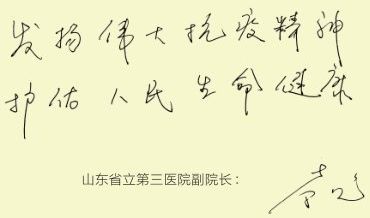 发扬伟大抗疫精神
护佑人民生命健康
山东省立第三医院副院长: